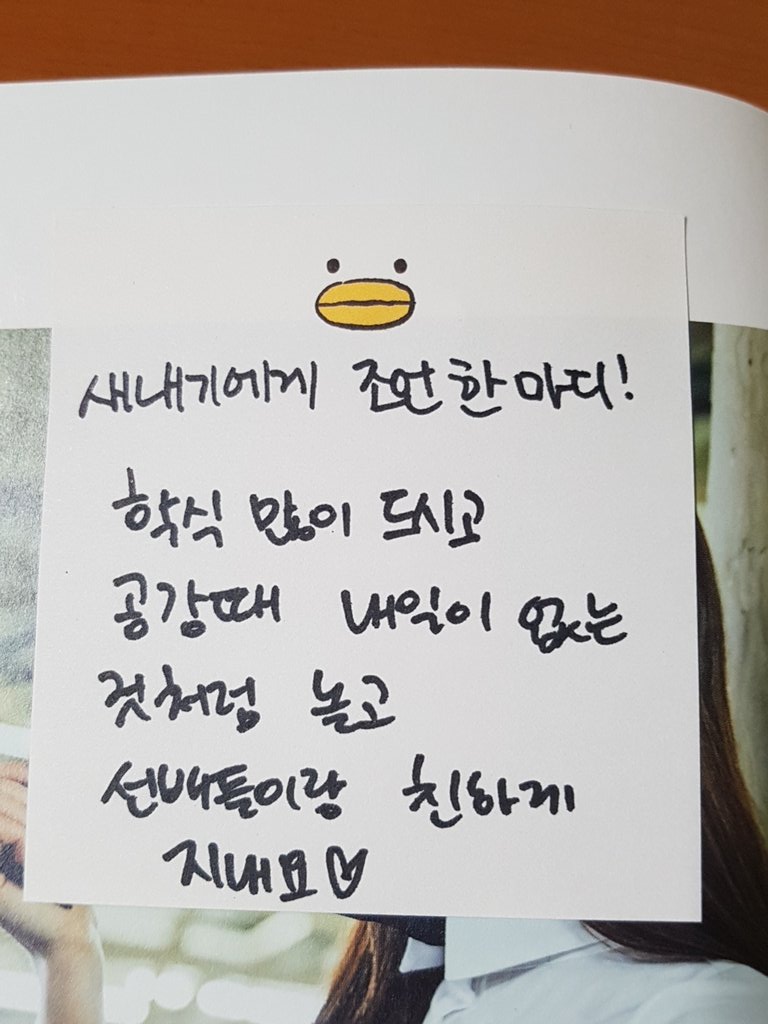 새내기에게 조언 한마디!
학식 많이 드시고
공강때 내일이 없는
것처럼 놀고
선배들이랑 친하게
지내요♡